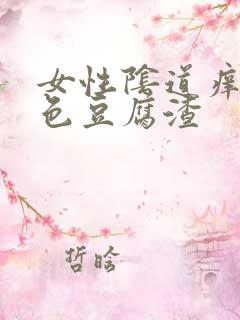 女性陰道痒
色豆腐渣
哲晗